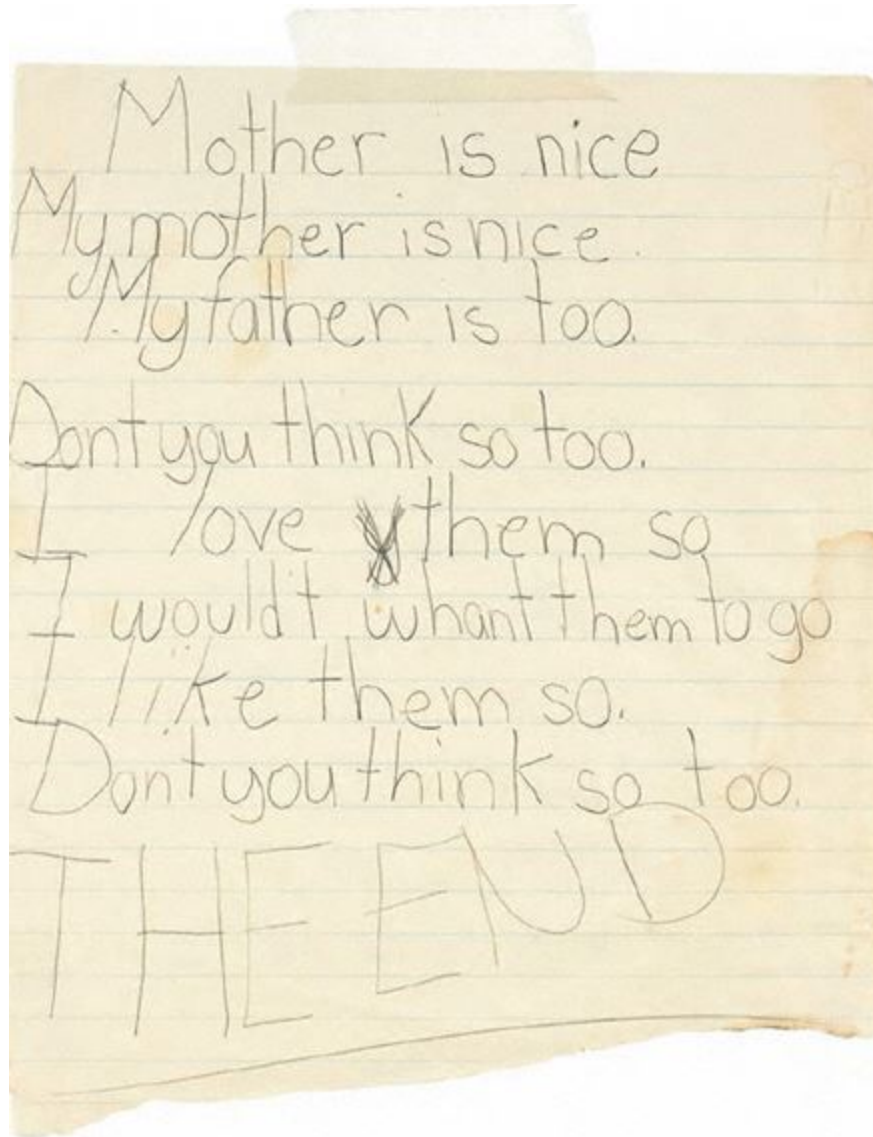 Mother is nice
My mother is nice.
My father is too.
Dont you think so too.
I love them so
I would't whant them to go
I like them so.
Dont you think so too.
THE END